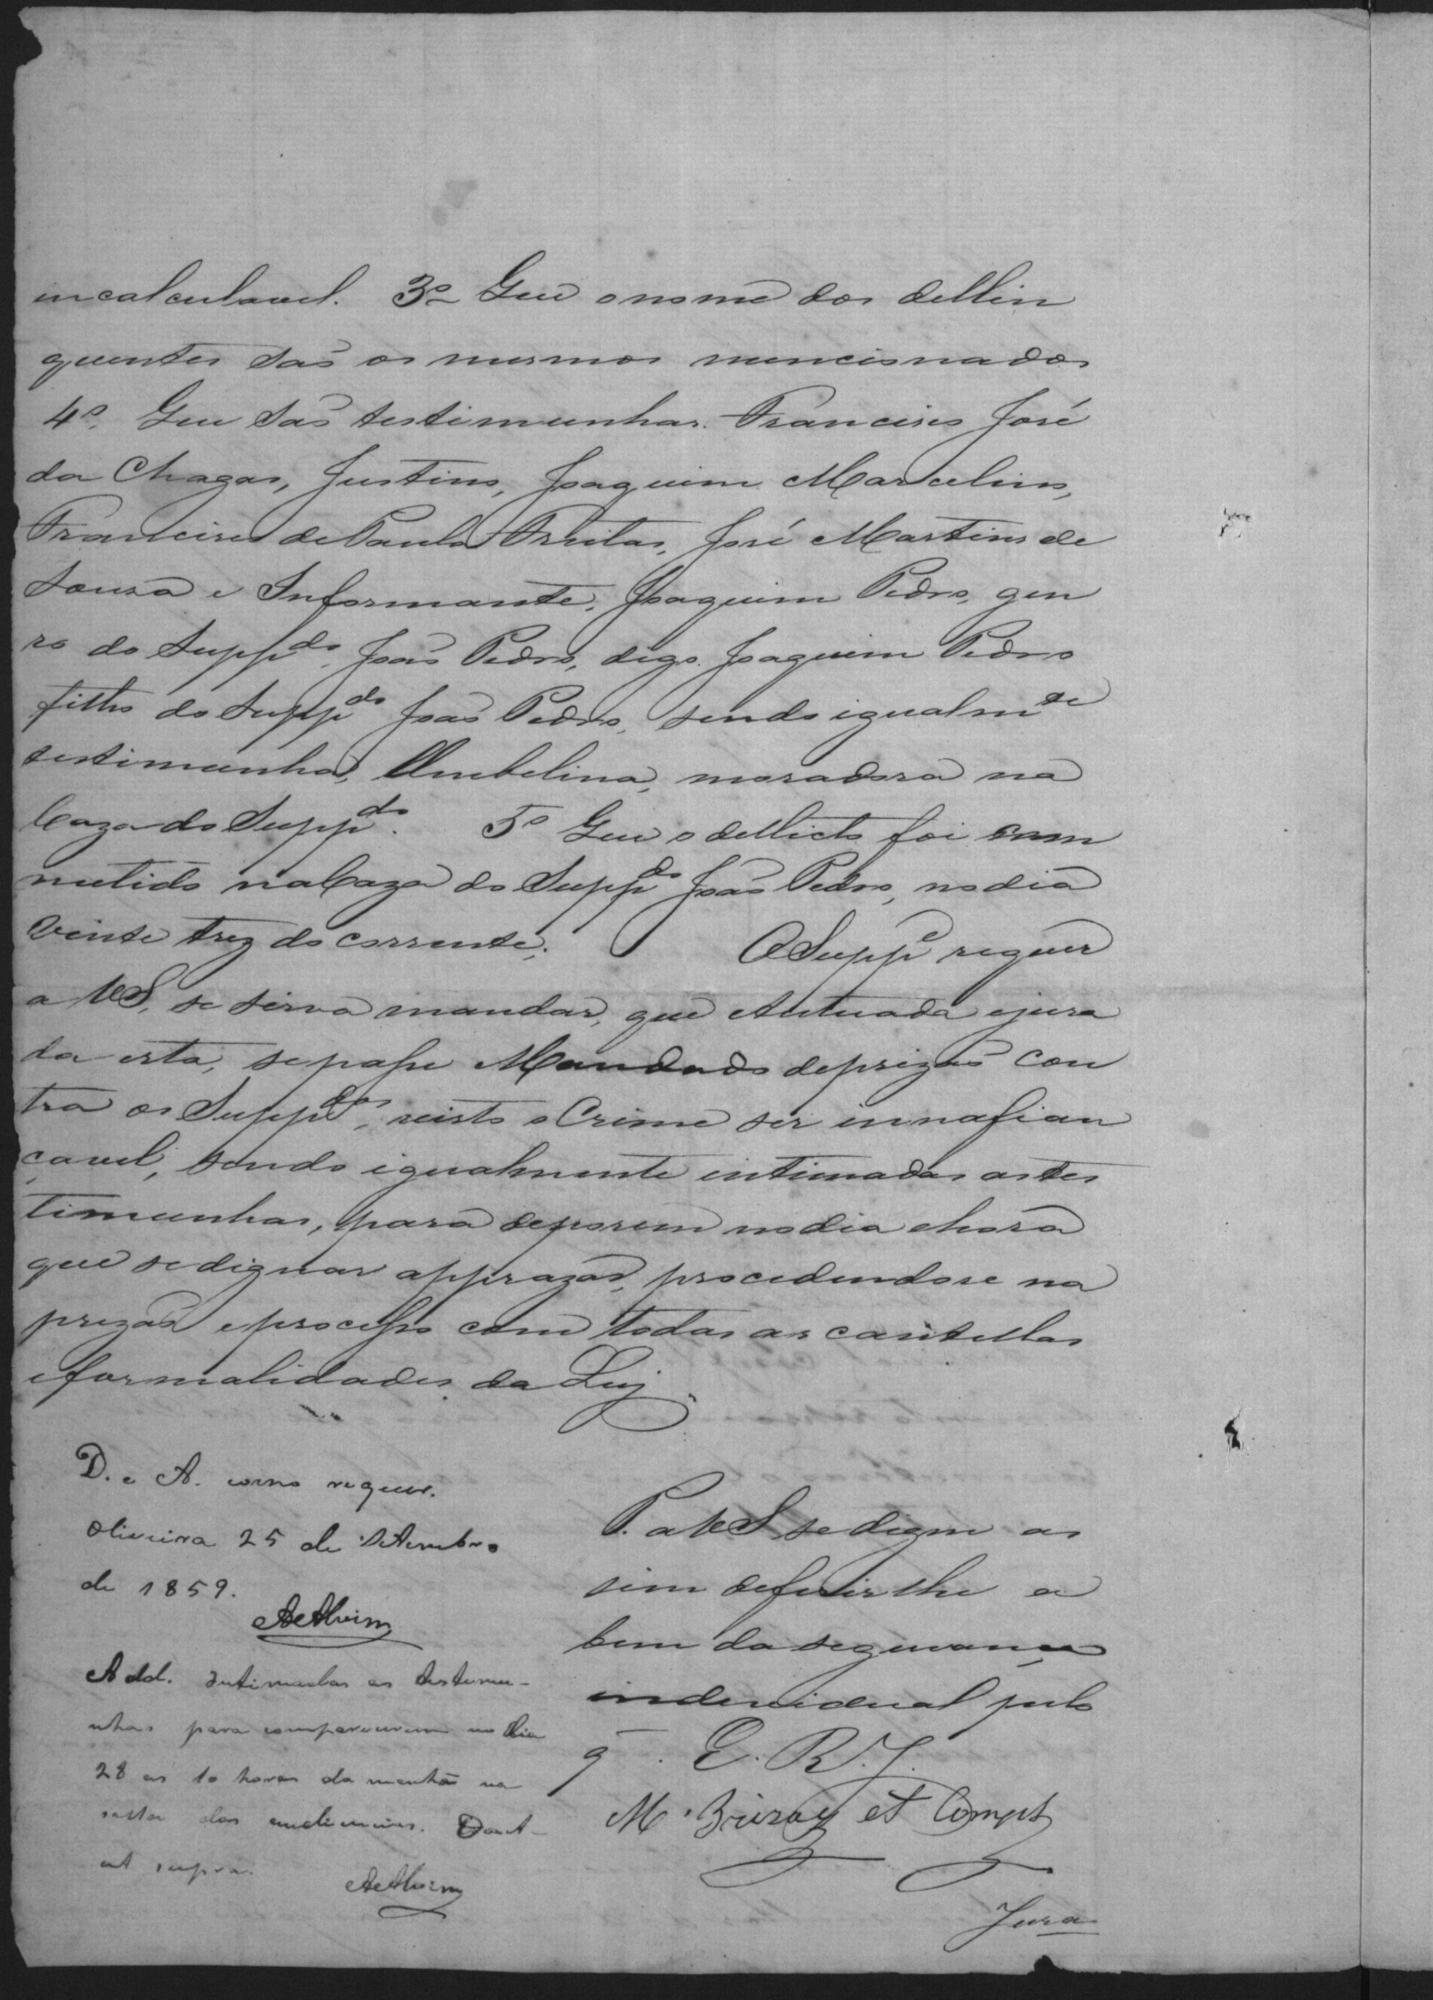 incalculavel. 3º Que o nome dos dellin
quentes saõ os mesmos mencionados
4º Que saõ testimunhas. Francisco José
da Chagas, Justino, Joaquim Marcelino,
Francisco de Paula Freitas, José Martins de
Souza e Informante, Joaquim Pedro, gen
ro do Suppdo Joaõ Pedro, digo Joaquim Pedro
filho do Suppdo Joaõ Pedro, sendo igualmte
testimunha, Umbelina, moradora na
Caza do Suppdo. 5º Que o dellicto foi com
metido na Caza do Suppdo Joaõ Pedro, no dia
vinte trez do corrente. O Suppe requer
a VS, se sirva mandar, que Autuada e jura
da esta, se passe Mandado de prizaõ con
tra os Suppdos, visto o Crime ser innafian
çavel, sendo igualmente intimadas as tes
timunhas, para deporem no dia e hora
que se dignar apprazar, procedendo se na
prizaõ e processo com todas as cautellas
e formalidades da Ley.
D. e A. como requer.
Oliveira 25 de Setembro
de 1859.
Add. Intimadas as testemu-
nhas para comparecerem no dia
28 as 10 horas da manhã na
salla das audiencias. Dact
ut supra.
P. a VS se digne as
sim deferir lhe a
bem da segurança
individual pelo
q̃. E. R. J.
M. et Comp
Jura